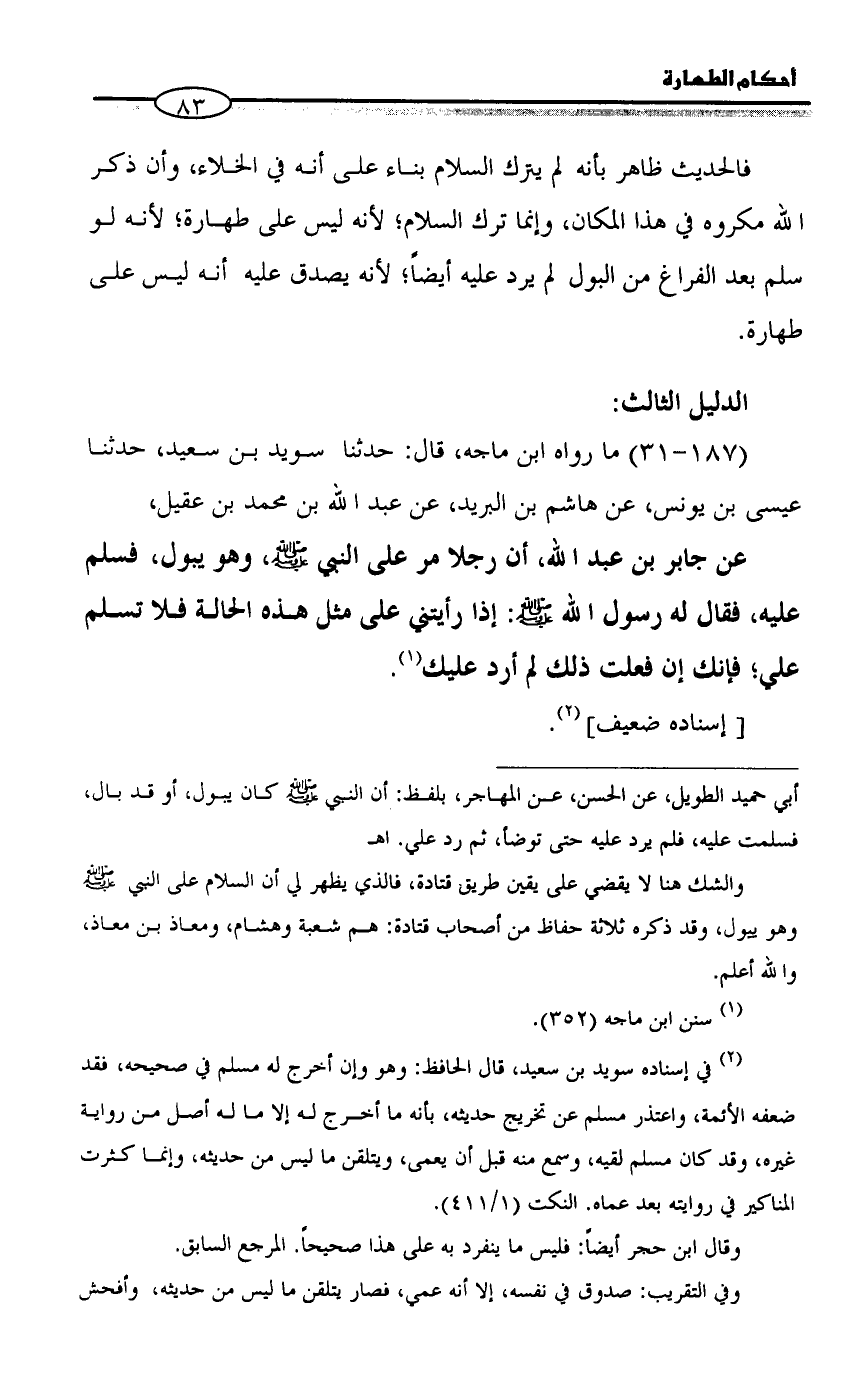 أحكام الطهارة
٨٣
فالحديث ظاهر بأنه لم يترك السلام بناء على أنه في الخلاء، وأن ذكر
الله مكروه في هذا المكان، وإنما ترك السلام؛ لأنه ليس على طهارة؛ لأنه لو
سلم بعد الفراغ من البول لم يرد عليه أيضاً؛ لأنه يصدق عليه أنه ليس على
طهارة.
الدليل الثالث:
(١٨٧-٣١) ما رواه ابن ماجه، قال: حدثنا سويد بن سعيد، حدثنا
عيسى بن يونس، عن هاشم بن البريد، عن عبد الله بن محمد بن عقيل،
عن جابر بن عبد الله، أن رجلا مر على النبي ﷺ، وهو يبول، فسلم
عليه، فقال له رسول الله ﷺ: إذا رأيتني على مثل هذه الحالة فلا تسلم
علي؛ فإنك إن فعلت ذلك لم أرد عليك(١).
[ إسناده ضعيف] (٢).
أبي حميد الطويل، عن الحسن، عن المهاجر، بلفظ: أن النبي ﷺ كان يبول، أو قد بال،
فسلمت عليه، فلم يرد عليه حتى توضأ، ثم رد علي. اهـ
والشك هنا لا يقضي على يقين طريق قتادة، فالذي يظهر لي أن السلام على النبي ﷺ
وهو يبول، وقد ذكره ثلاثة حفاظ من أصحاب قتادة: هم شعبة وهشام، ومعاذ بن معاذ،
والله أعلم.
(١) سنن ابن ماجه (٣٥٢).
(٢) في إسناده سويد بن سعيد، قال الحافظ: وهو وإن أخرج له مسلم في صحيحه، فقد
ضعفه الأئمة، واعتذر مسلم عن تخريج حديثه، بأنه ما أخرج له إلا ما له أصل من رواية
غيره، وقد كان مسلم لقيه، وسمع منه قبل أن يعمى، ويتلقن ما ليس من حديثه، وإنما كثرت
المناكير في روايته بعد عماه. النكت (٤١١/١).
وقال ابن حجر أيضاً: فليس ما ينفرد به على هذا صحيحاً. المرجع السابق.
وفي التقريب: صدوق في نفسه، إلا أنه عمي، فصار يتلقن ما ليس من حديثه، وأفحش